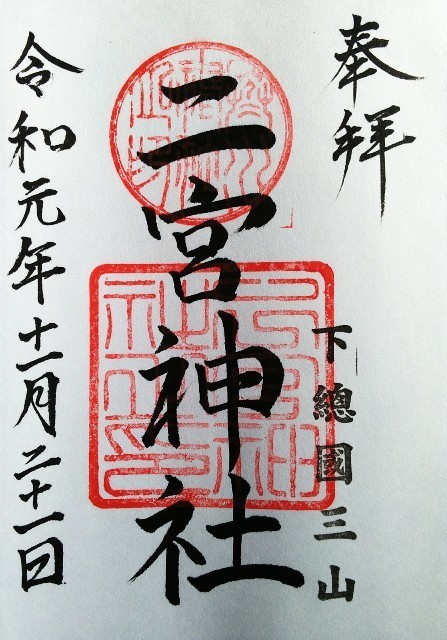 奉拝
下總國三山
二宮神社
令和元年十一月二十一日